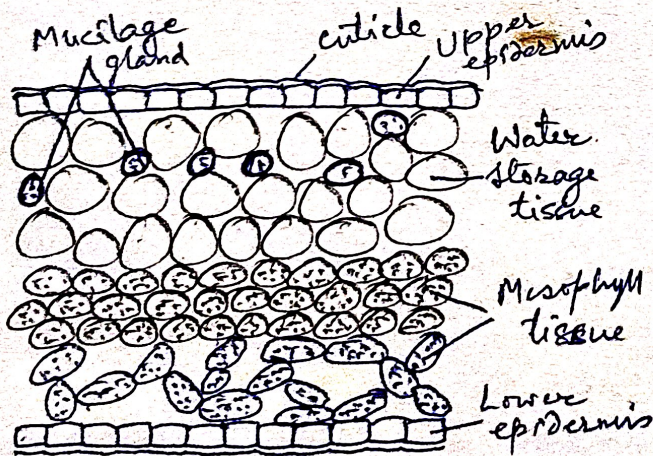 Mucilage
gland
cuticle
Upper
epidermis
Water
storage
tissue
Mesophyll
tissue
Lower
epidermis